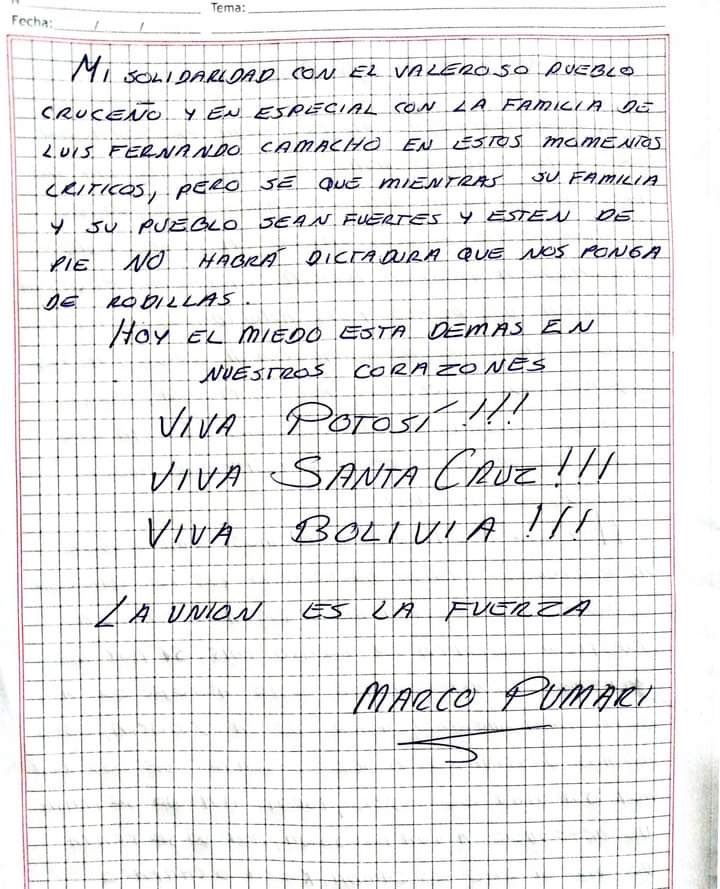 Tema:
Fecha: / /
MI SOLIDARIDAD CON EL VALEROSO PUEBLO
CRUCEÑO Y EN ESPECIAL CON LA FAMILIA DE
LUIS FERNANDO CAMACHO EN ESTOS MOMENTOS
CRITICOS, PERO SE QUE MIENTRAS SU FAMILIA
Y SU PUEBLO SEAN FUERTES Y ESTEN DE
PIE NO HABRÁ DICTADURA QUE NOS PONGA
DE RODILLAS.
HOY EL MIEDO ESTA DEMAS EN
NUESTROS CORAZONES
VIVA POTOSÍ!!!
VIVA SANTA CRUZ!!!
VIVA BOLIVIA!!!
LA UNION ES LA FUERZA
MARCO PUMARI